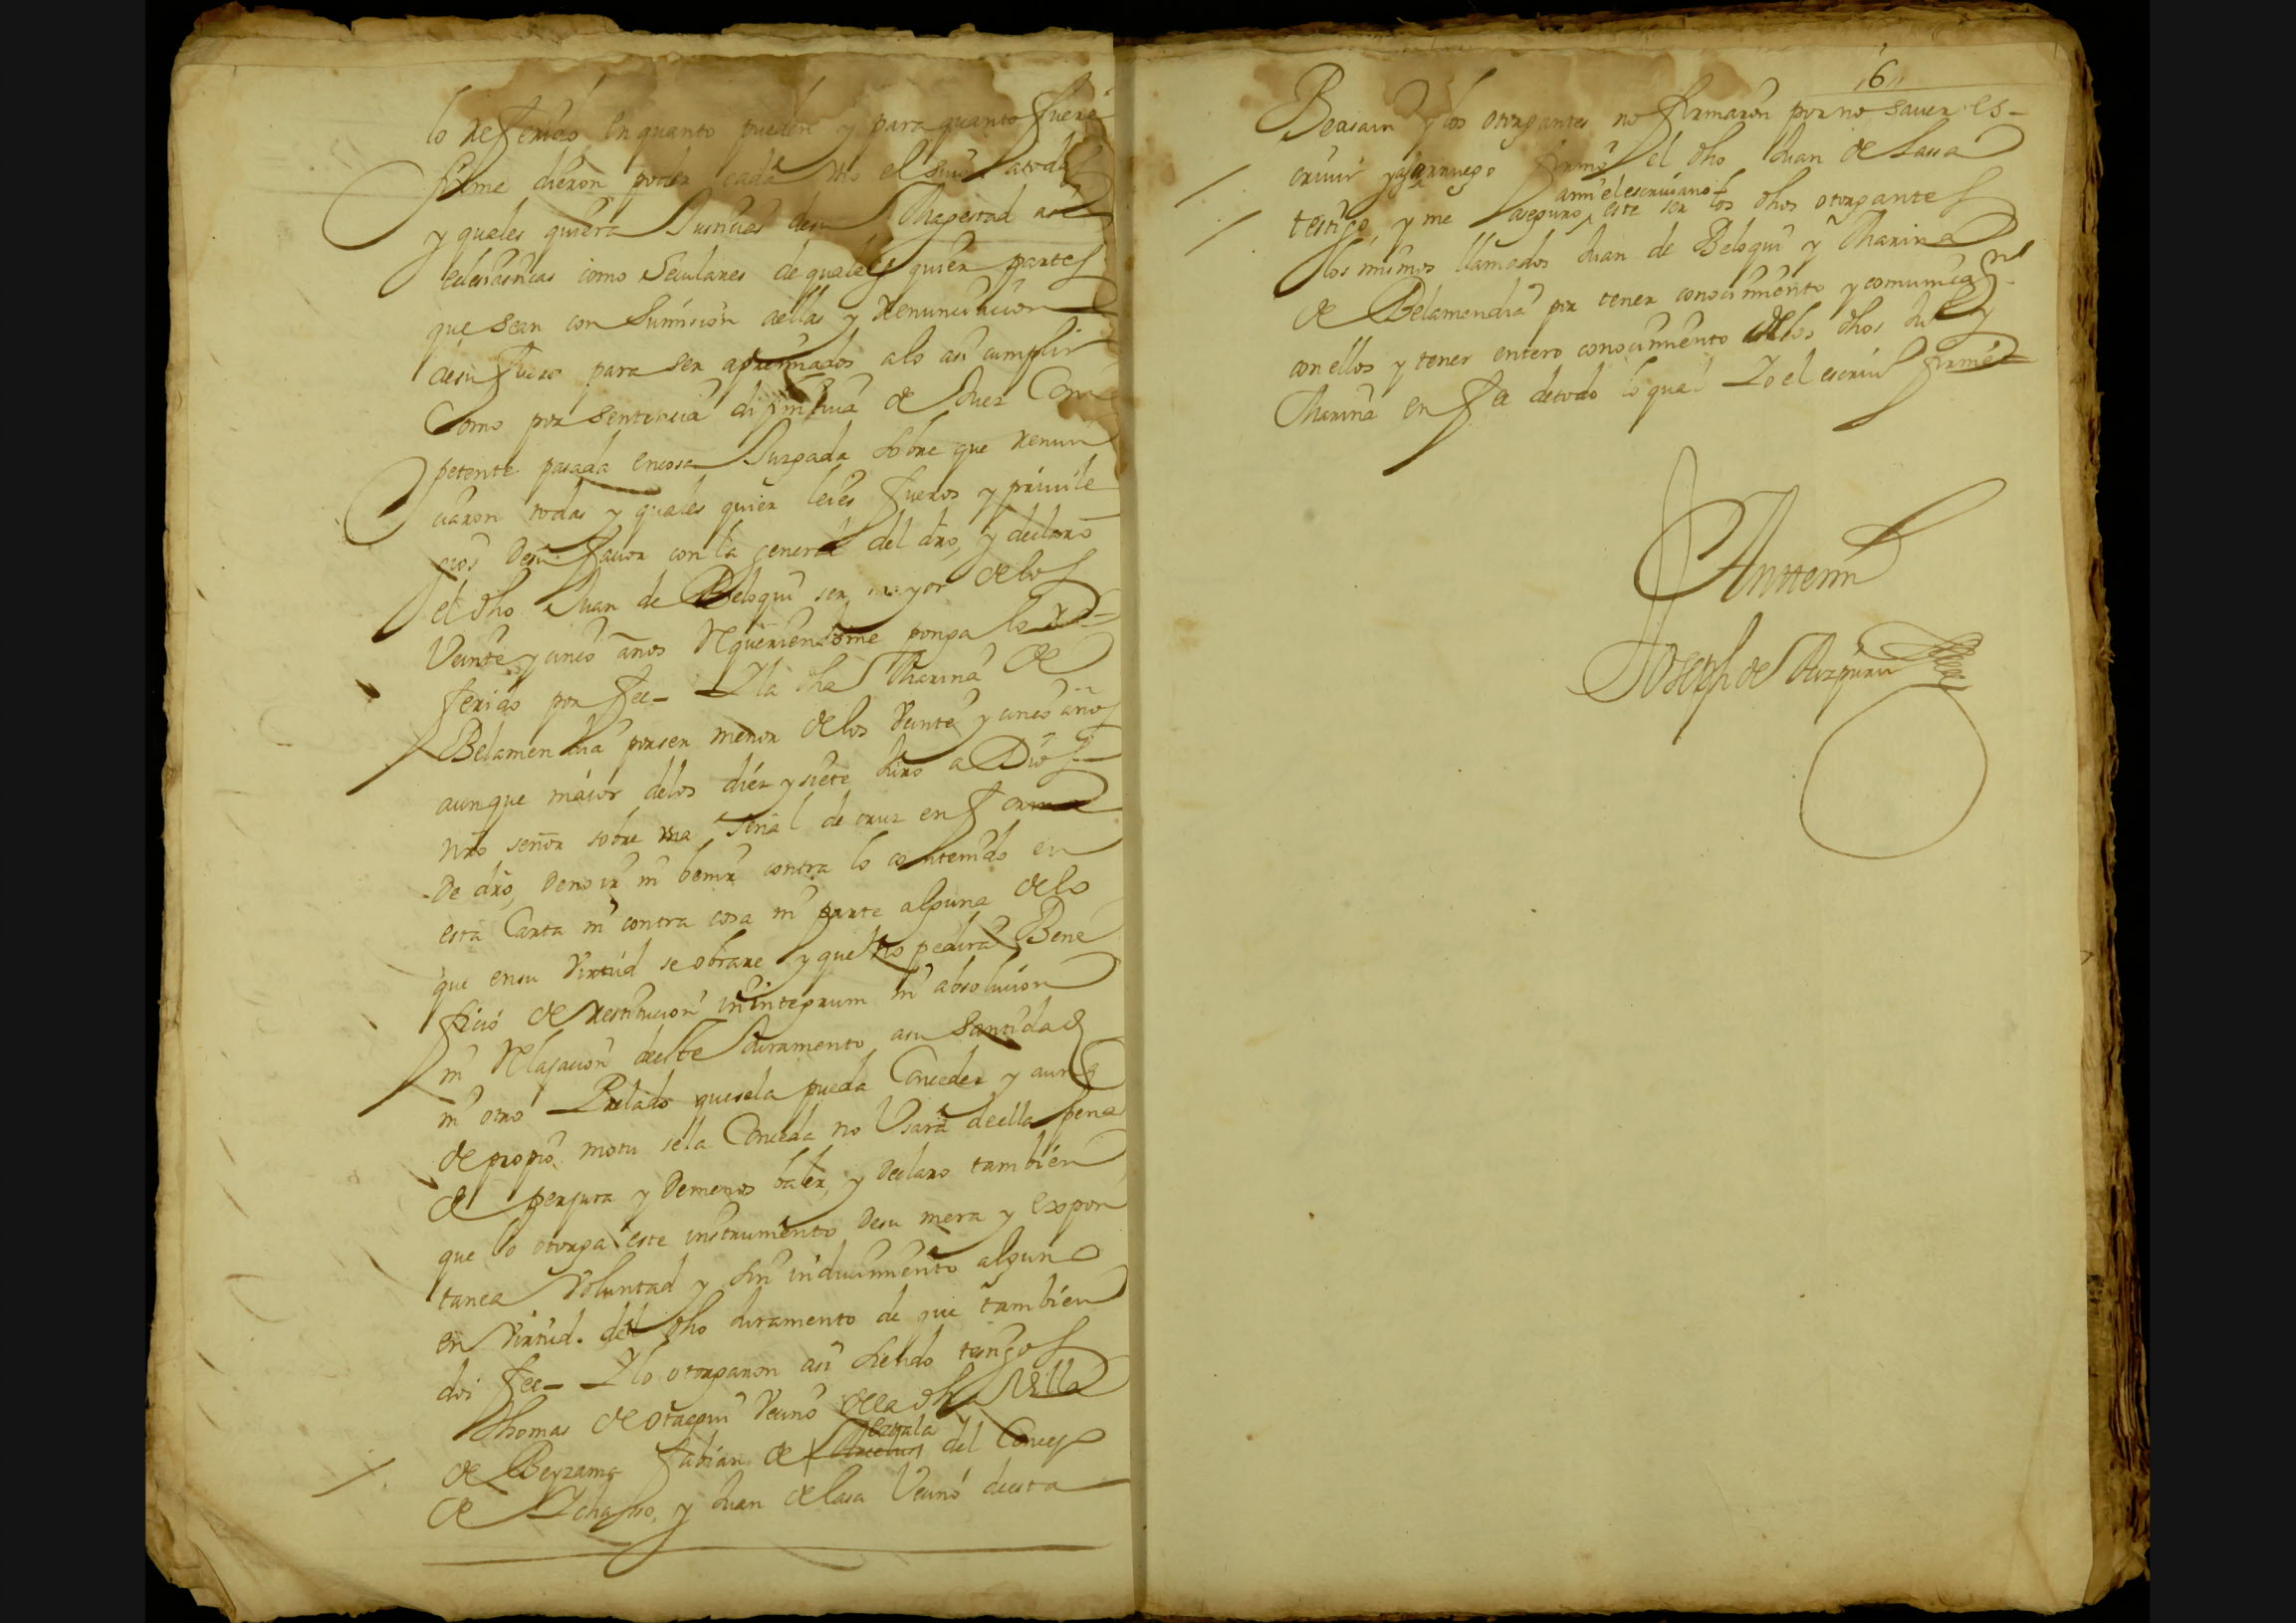 lo referido en quanto pueden y para quanto fuere
firme dieron poder cada vno el suio a todas
y quales quiera Justicias de su Magestad asi
eclesiasticas como Seculares de quales quier partes
que sean con sumision a ellas y Renunciacion
de su fuero para ser apremiados a lo asi cumplir
Como por sentencia difinitiua de Juez Com
petente pasada en cosa Juzgada sobre que renun
ciaron todas y quales quier leies fueros y priuile
gios de su fauor con la general del dro, y declaro
el dho Juan de Beloqui ser mayor de los
Veinte y cinco años Requeriendome ponga lo re-
ferido por fee- Y la dha Marina de
Belamendia por ser menor de los Veinte y cinco años
aunque maior de los diez y siete Juro a Dios
nro señor sobre vna señal de cruz en forma
de dro, de no ir ni benir contra lo contenido en
esta Carta ni contra cosa ni parte alguna de lo
que en su Virtud se obrare y que no pedira Bene
ficio de restitucion in integrum ni absolucion
ni Relajacion deeste Juramento a su Santidad
ni otro Prelado que se la pueda Conceder y aunq
de propio motu se la Conceda no Vsara de ella pena
de perjura y de menos baler, y declaro tambien
que lo otorga este instrumento de su mera y espon
tanea Voluntad y sin inducimiento alguno
en Virtud del dho Juramento de que tambien
doi fee- Y lo otorgaron asi siendo testigos
Thomas de Otaegui Vecino de la dha Villa
de Beyzama Fabian de Zauala del Concejo
de Ychasso, y Juan de Lasa Vecino de esta
6
Beasain y los otorgantes no firmaron por no sauer es-
criuir y a su ruego firmo el dho Juan de Lassa
ami el escriuano
testigo y me aseguro este ser los dhos otorgantes
los mismos llamados Juan de Beloqui y Marina
de Belamendia por tener conocimiento y comunicaon
con ellos y tener entero conocimiento de los dhos Jun y
Marina en fe de todo lo qual Yo el escriuo firmé-
Antemi
Joseph de Aizpuru